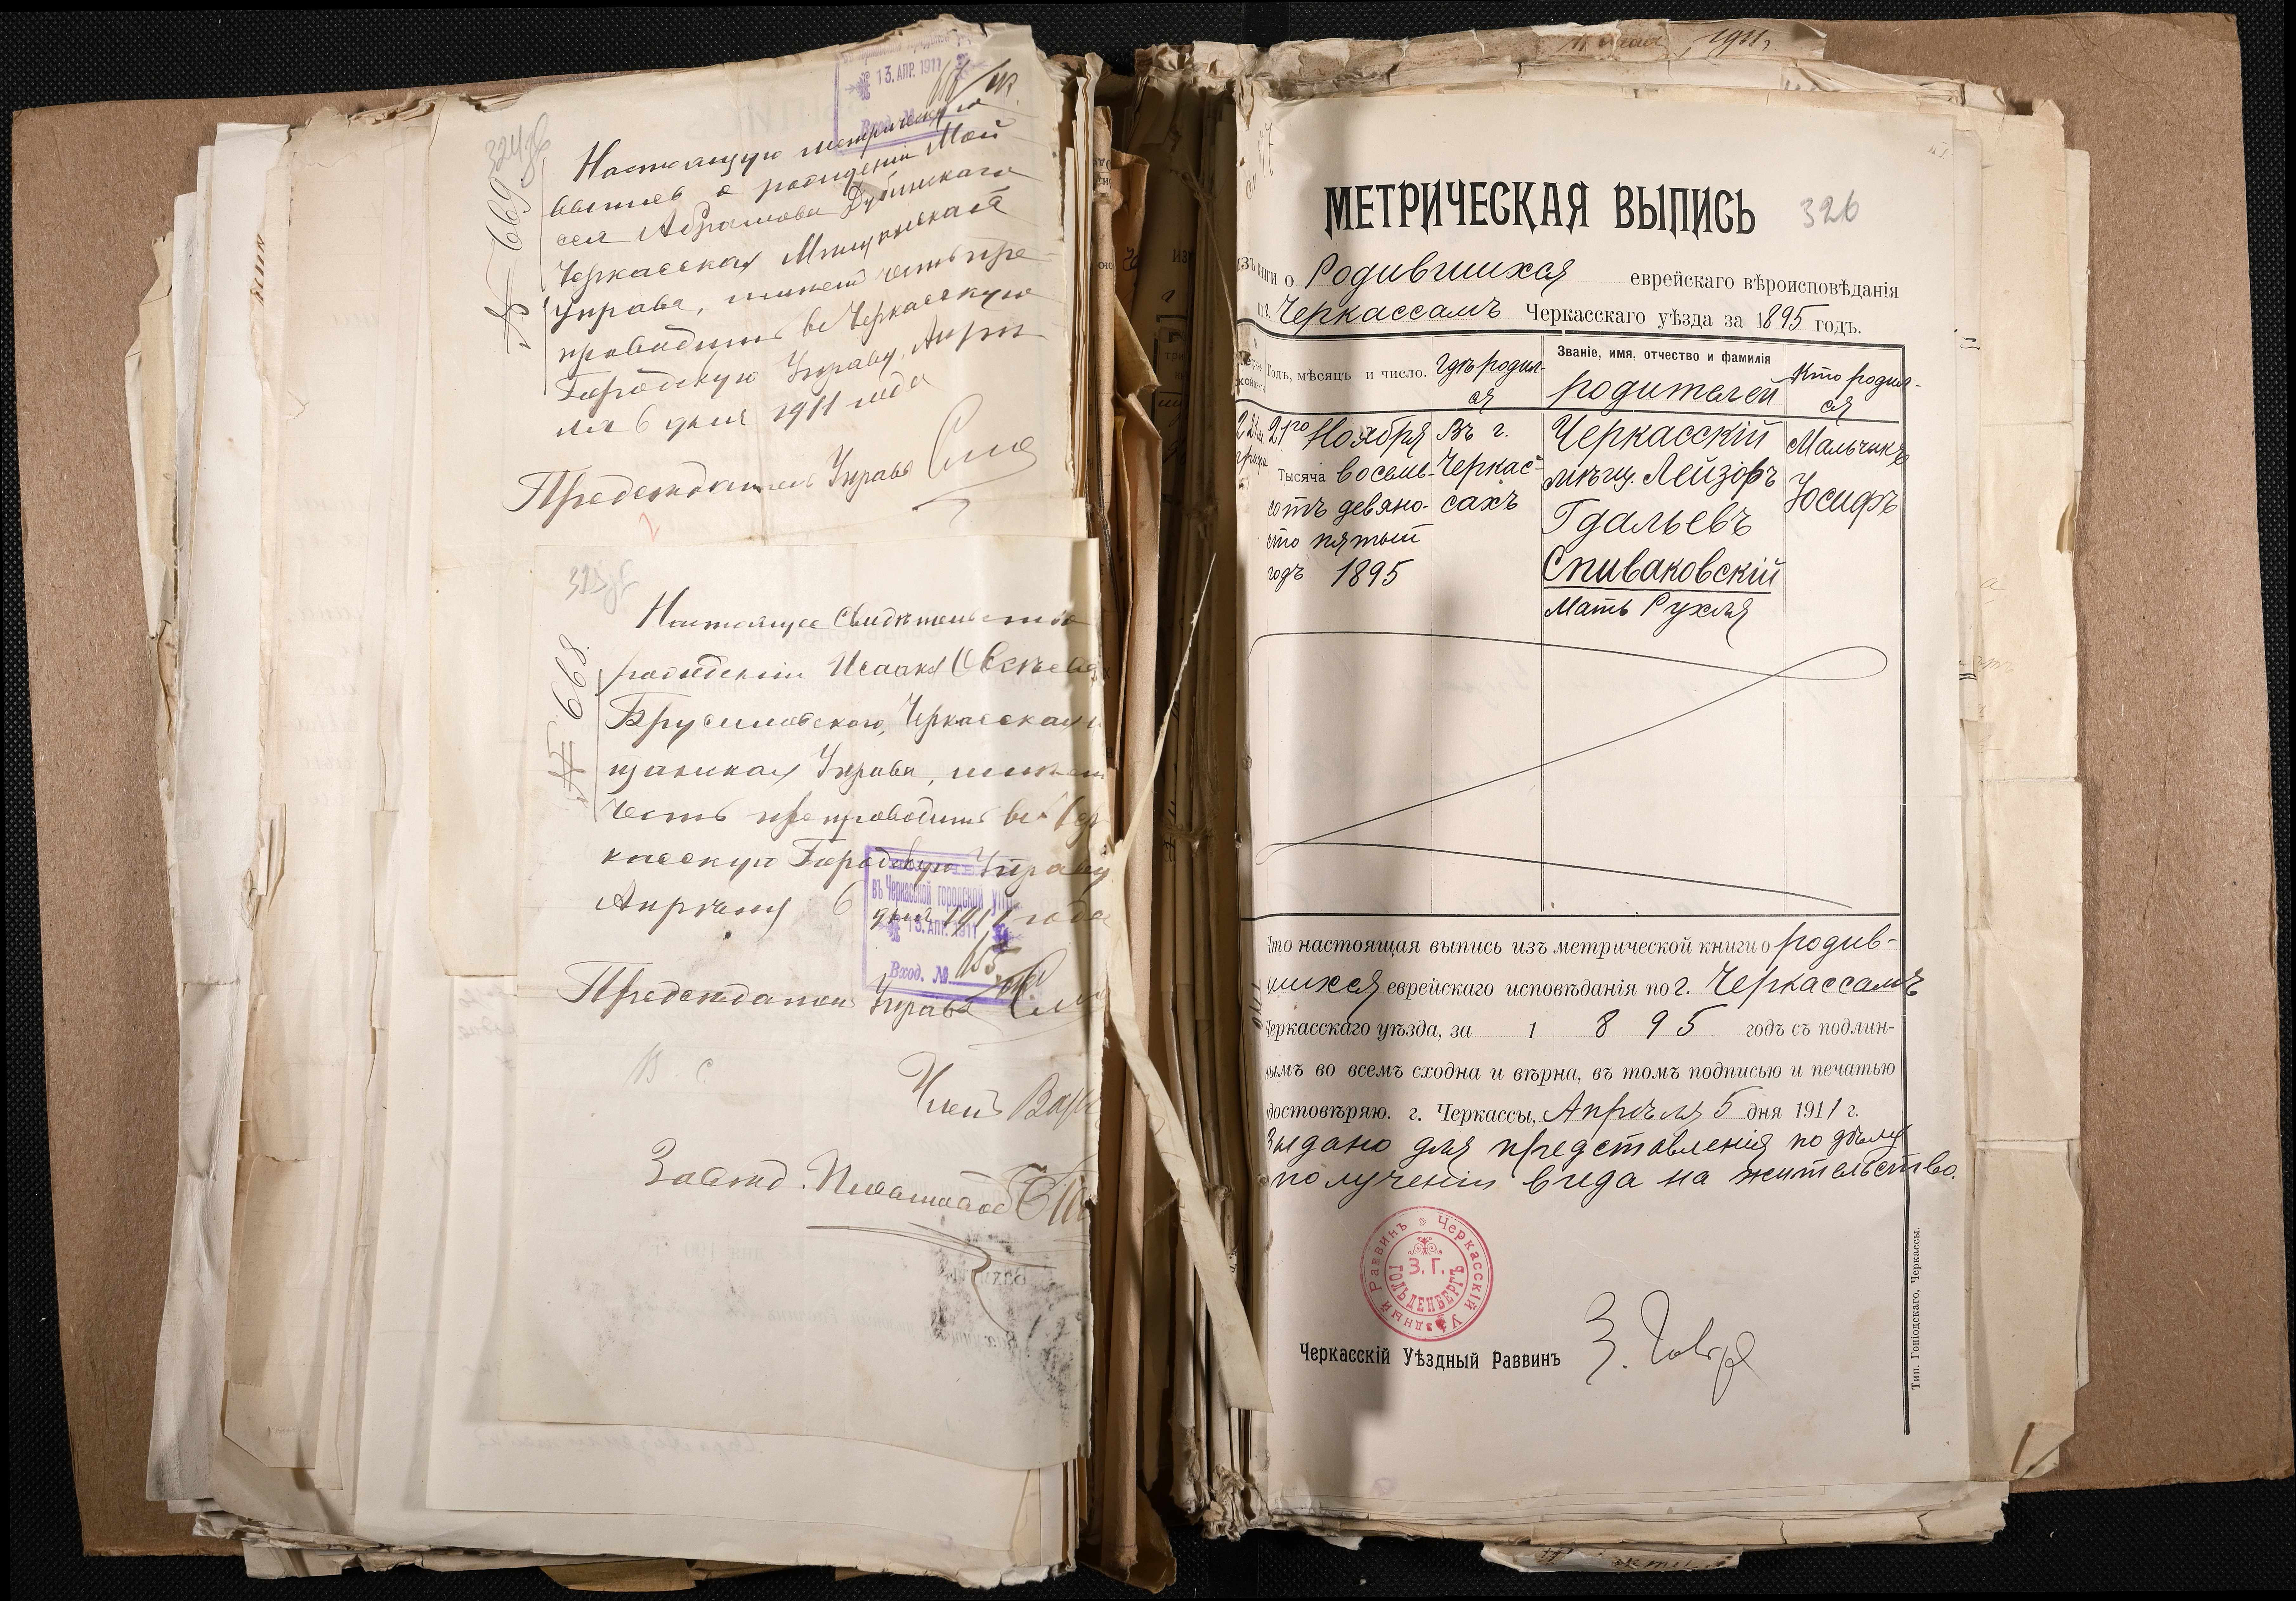 324об
13. АПР. 1911
№ 669
Настоящую метрическую
выпись о рождении Мой
сея Абрамова Дубинскаго
Черкасская Мѣщанская
Управа, имѣет честь пре
проводить въ Черкасскую
Городскую Управу. Апрѣ
ля 6 дня 1911 года
Предсѣдатель Управы
№ 668.
Настоящее Свидѣтельство
рождении Исаака Овсѣева
Брусиловского, Черкасская
щанская Управа, имѣет
честь препроводить въ Чер
касскую Городскую Управу
Апрѣля 6 дня 1911 года
въ Черкасской городской упр
13. АПР. 1911
Вход. №
Предсѣдатель Управы
В. С.
Членъ
Завѣд.
1911 г.
МЕТРИЧЕСКАЯ ВЫПИСЬ 326
изъ книги о Родившихся еврейскаго вѣроисповѣданія
по г. Черкассамъ Черкасскаго уѣзда за 1895 годъ.
Годъ, мѣсяцъ и число. Гдѣ родил-ся Званіе, имя, отчество и фамилія родителей Кто родил-ся
21го Ноября Въ г. Черкасскій Мальчикъ
Тысяча восемь- Черкас- мѣщ. Лейзоръ Іосифъ
сотъ девяно- сахъ Гдальевъ
сто пятый Спиваковскій
годъ 1895 Мать Рухля
Что настоящая выпись изъ метрической книги о родив-
шихся еврейскаго исповѣданія по г. Черкассамъ
Черкасскаго уѣзда, за 1 8 9 5 годъ съ подлин-
нымъ во всемъ сходна и вѣрна, въ томъ подписью и печатью
удостовѣряю. г. Черкассы, Апрѣля 5 дня 1911 г.
Выдано для представленія по дѣлу
о полученіи вида на жительство.
Черкасскій Уѣздный Раввинъ
З. Г.
ГОЛЬДЕНБЕРГЪ
Черкасскій Уѣздный Раввинъ
Тип. Гоніодскаго, Черкассы.